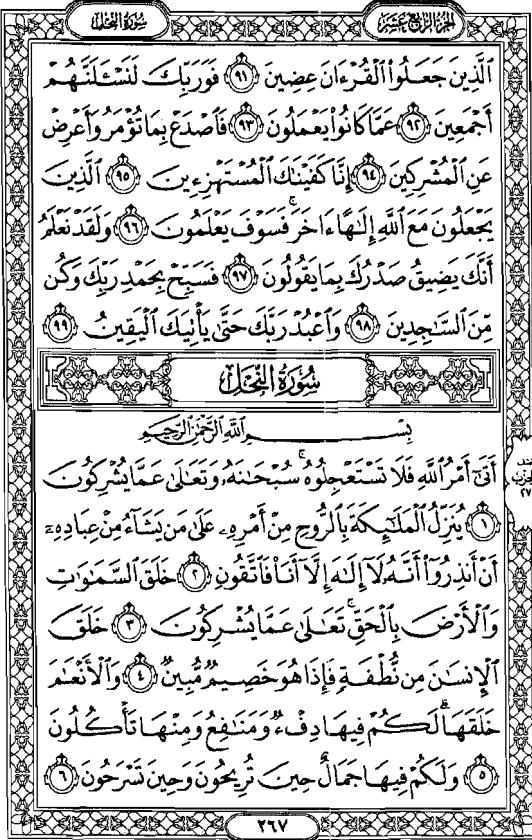 سُورَةُ النَّحْلِ
الجُزْءُ الرَّابِعُ عَشَر
الَّذِينَ جَعَلُوا الْقُرْءَانَ عِضِينَ ٩١ فَوَرَبِّكَ لَنَسْـَٔلَنَّهُمْ
أَجْمَعِينَ ٩٢ عَمَّا كَانُوا يَعْمَلُونَ ٩٣ فَاصْدَعْ بِمَا تُؤْمَرُ وَأَعْرِضْ
عَنِ الْمُشْرِكِينَ ٩٤ إِنَّا كَفَيْنَٰكَ الْمُسْتَهْزِءِينَ ٩٥ الَّذِينَ
يَجْعَلُونَ مَعَ اللَّهِ إِلَٰهًا ءَاخَرَ ۚ فَسَوْفَ يَعْلَمُونَ ٩٦ وَلَقَدْ نَعْلَمُ
أَنَّكَ يَضِيقُ صَدْرُكَ بِمَا يَقُولُونَ ٩٧ فَسَبِّحْ بِحَمْدِ رَبِّكَ وَكُن
مِّنَ السَّٰجِدِينَ ٩٨ وَاعْبُدْ رَبَّكَ حَتَّىٰ يَأْتِيَكَ الْيَقِينُ ٩٩
سُورَةُ النَّحْلِ
بِسْمِ اللَّهِ الرَّحْمَٰنِ الرَّحِيمِ
أَتَىٰٓ أَمْرُ اللَّهِ فَلَا تَسْتَعْجِلُوهُ ۚ سُبْحَٰنَهُۥ وَتَعَٰلَىٰ عَمَّا يُشْرِكُونَ
١ يُنَزِّلُ الْمَلَٰٓئِكَةَ بِالرُّوحِ مِنْ أَمْرِهِۦ عَلَىٰ مَن يَشَآءُ مِنْ عِبَادِهِۦٓ
أَنْ أَنذِرُوٓا أَنَّهُۥ لَآ إِلَٰهَ إِلَّآ أَنَا۠ فَاتَّقُونِ ٢ خَلَقَ السَّمَٰوَٰتِ
وَالْأَرْضَ بِالْحَقِّ ۚ تَعَٰلَىٰ عَمَّا يُشْرِكُونَ ٣ خَلَقَ
الْإِنسَٰنَ مِن نُّطْفَةٍ فَإِذَا هُوَ خَصِيمٌ مُّبِينٌ ٤ وَالْأَنْعَٰمَ
خَلَقَهَا ۗ لَكُمْ فِيهَا دِفْءٌ وَمَنَٰفِعُ وَمِنْهَا تَأْكُلُونَ
٥ وَلَكُمْ فِيهَا جَمَالٌ حِينَ تُرِيحُونَ وَحِينَ تَسْرَحُونَ ٦
٢٦٧